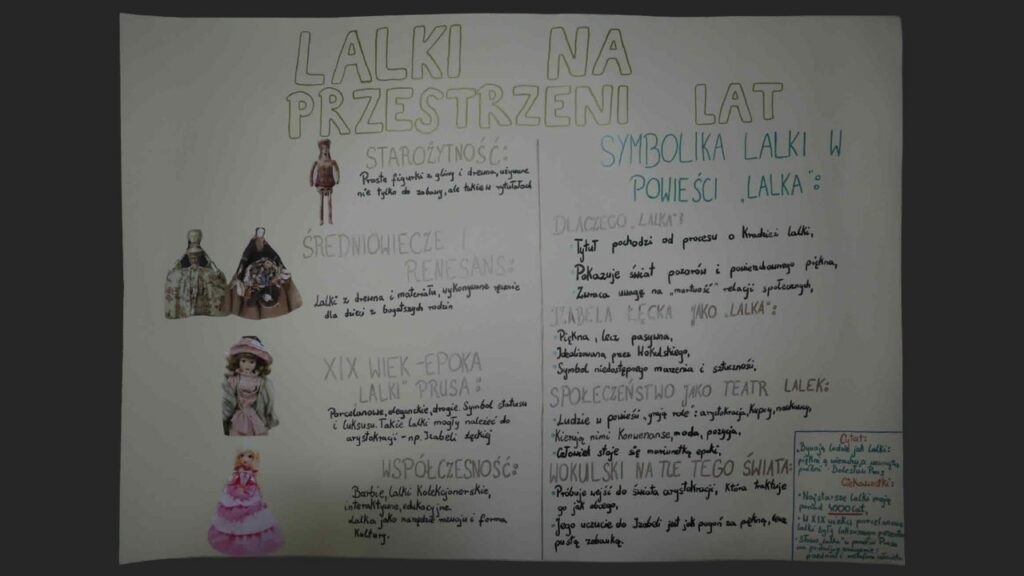 LALKI NA
PRZESTRZENI LAT
STAROŻYTNOŚĆ:
Proste figurki z gliny i drewna, używane
nie tylko do zabawy, ale także w rytuałach
ŚREDNIOWIECZE I
RENESANS:
Lalki z drewna i materiału, wykonywane ręcznie
dla dzieci z bogatszych rodzin
XIX WIEK - EPOKA
LALKI" PRUSA:
Porcelanowe, eleganckie, drogie. Symbol statusu
i luksusu. Takie lalki mogły należeć do
arystokracji - np. Izabeli Łęckiej
WSPÓŁCZESNOŚĆ:
Barbie, lalki kolekcjonerskie,
interaktywne, edukacyjne.
Lalka jako narzędzie rozwoju i forma
kultury.
SYMBOLIKA LALKI W
POWIEŚCI „LALKA":
DLACZEGO „LALKA"?
Tytuł pochodzi od procesu o kradzież lalki,
Pokazuje świat pozorów i powierzchownego piękna,
Zwraca uwagę na „martwość" relacji społecznych,
IZABELA ŁĘCKA JAKO „LALKA":
Piękna, lecz pasywna,
Idealizowana przez Wokulskiego,
Symbol niedostępnego marzenia i sztuczności.
SPOŁECZEŃSTWO JAKO TEATR LALEK:
Ludzie w powieści „grają role": arystokracja, kupcy, naukowcy,
Kierują nimi konwenanse, moda, pozycja,
Człowiek staje się marionetką epoki,
WOKULSKI NA TLE TEGO ŚWIATA:
Próbuje wejść do świata arystokracji, która traktuje
go jak obcego,
Jego uczucie do Izabeli jest jak pogoń za piękną, lecz
pustą zabawką.
Cytat:
„Bywają ludzie jak lalki:
piękni z wierzchu, a wewnątrz
puści" Bolesław Prus
Ciekawostki:
Najstarsze lalki mają
ponad 4000 lat,
W XIX wieku porcelanowe
lalki były luksusowym prezentem
Słowo „lalka" u Prusa